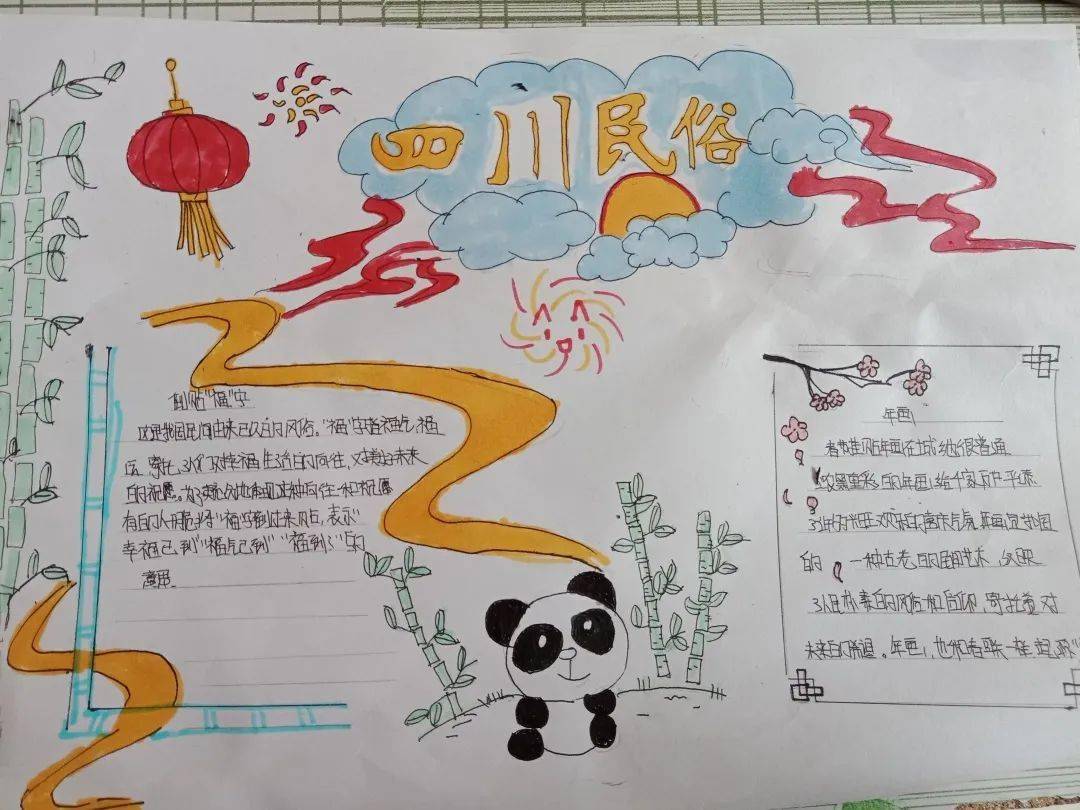 四川民俗
倒贴"福"字
这是我国民间由来已久的风俗。"福"字指福气、福
运,寄托了人们对幸福生活的向往,对美好未来
的祝愿。为了更充分地体现这种向往和祝愿
有的人干脆将"福"字倒过来贴,表示"
幸福已到""福气已到""福到了"的
意思
年画
春节贴年画在城乡也很普遍
浓墨重彩的年画给千家万户平添
了许多兴旺欢乐的喜庆气氛,年画是我国
的 一种古老的民间艺术,反映
了人民朴素的风俗和信仰,寄托着对
未来的希望。年画,也和春联一样,起源"